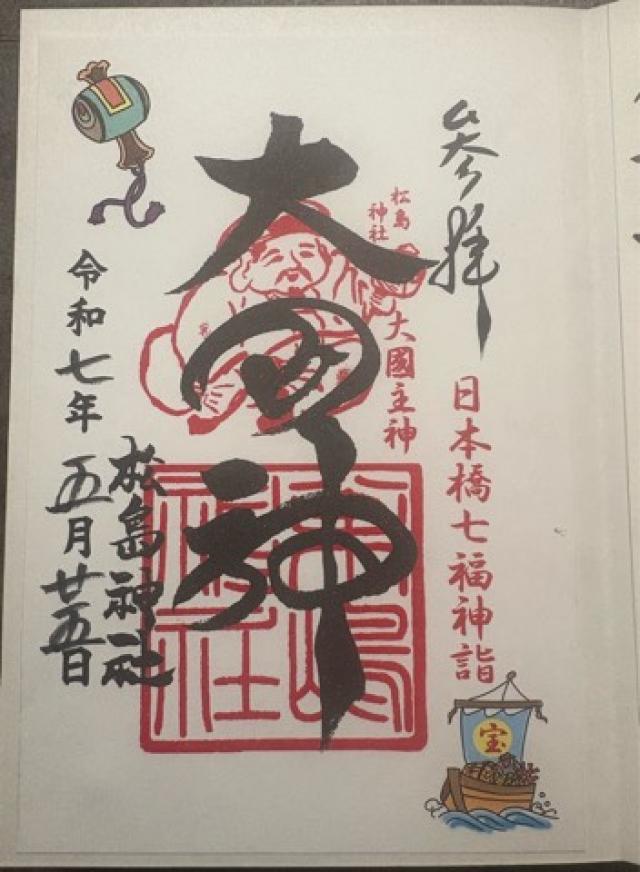 参拝
日本橋七福神詣
宝
松島
神社
大國主神
大国神
松島
神社
松島神社
令和七年五月廿五日